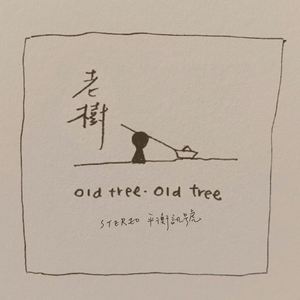 老樹
old tree. old tree
STEREO 平衡訊號